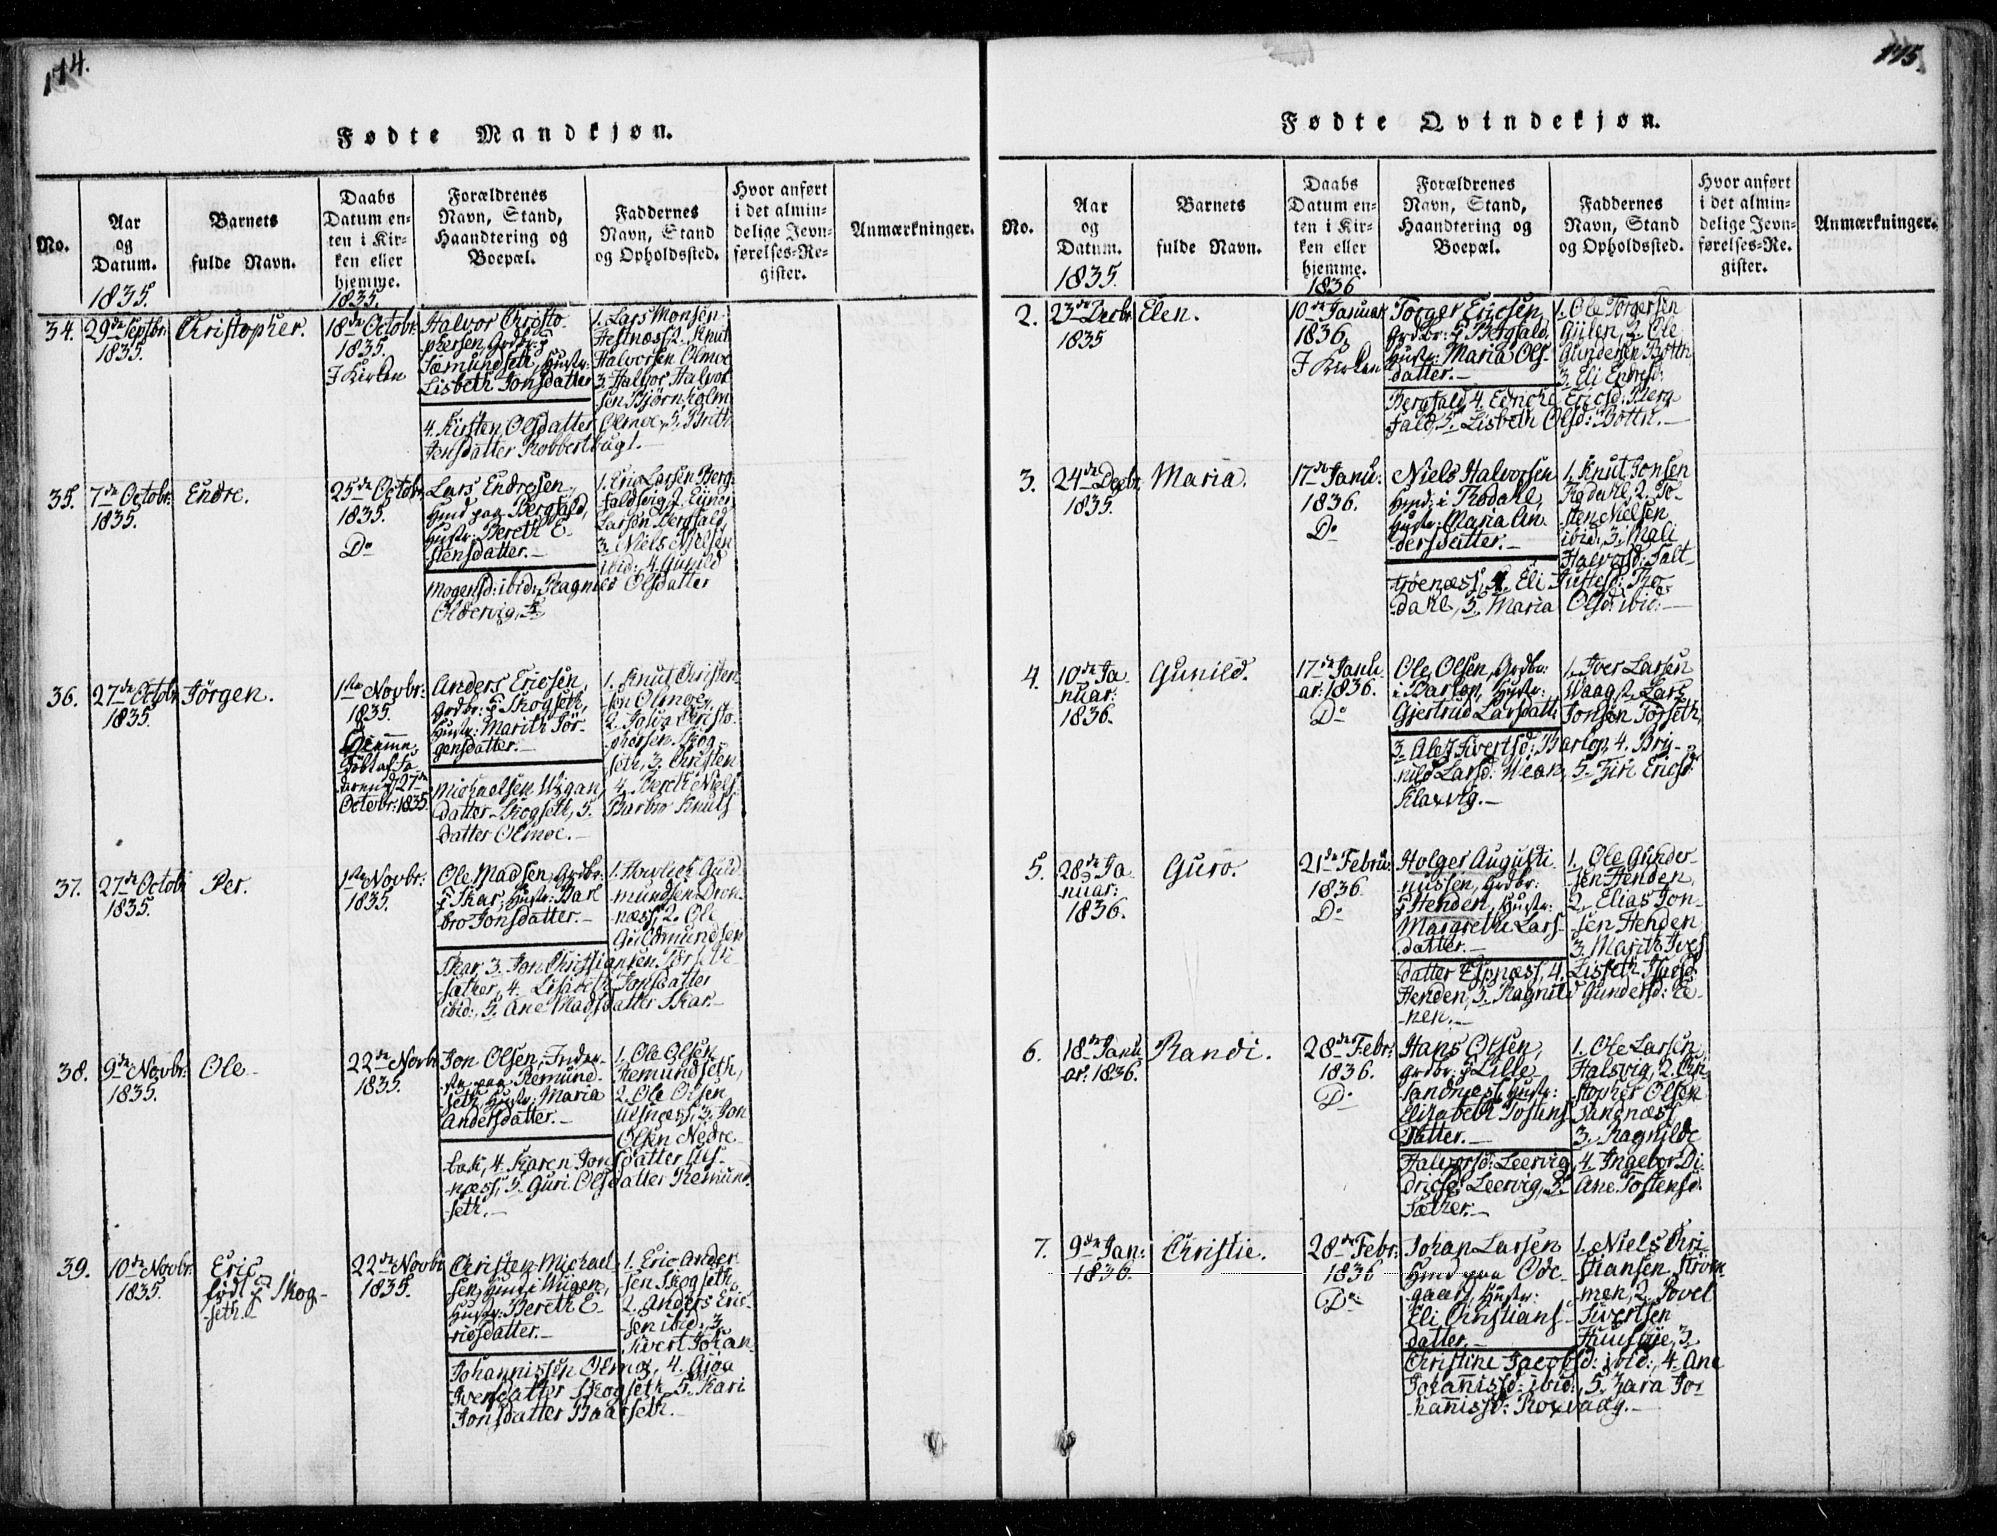 114.
Fødte Mandkjøn.
No.
Aar
og
Datum.
1835.
Barnets
fulde Navn.
Daabs
Datum en-
ten i Kir-
ken eller
hjemme.
1835.
Forældrenes
Navn, Stand,
Haandtering og
Boepæl.
Faddernes
Navn, Stand
og Opholdssted.
Hvor anført
i det almin-
delige Jevn-
førelses-Re-
gister.
Anmærkninger.
34.
29de Septbr:
1835.
Christopher.
18de Octobr:
1835.
I Kirken
Halvor Christo-
phersen, Grdbr: på
Sæmundseth, Hustr:
Lisbeth Jonsdatter
1. Lars Monsen
Hestnæss, 2. Knut
Halvorsen Olmoe
3. Halvor Halvor
sen Bjørnholm
4. Kirsten Olsdatter Olmoe, 5. Brith
Jensdatter Kobbertbugt.—
35.
7de Octobr:
1835.
Endre.
25de Octobr:
1835.
Do
Lars Endresen,
Hmd paa Bergfald,
Hustr: Bereth E-
stensdatter.—
1. Eric Larsen Berg-
faldsvig, 2. Einer
Larsen Bergfald,
3. Niels Nielsen
ibid:, 4. Gunild
Mogensd: ibid:, Ragnild Olsdatter
Oldervig, 5.
36.
27de Octobr:
1835.
Jörgen.
1ste Novbr:
1835.
Hjemme-
døbt af Fa-
deren d 27de
Octobr: 1835
Anders Ericsen,
Grdbr: på Skogseth,
Hustr: Marith Jör-
gensdatter.—
1. Knut Christen
sen Olmoe,
2. Halvor Christo-
phersen Skog
seth, 3. Christen
Michaelsen Wigan, 4. Bereth Niels
datter Skogseth, 5. Barbro Knuts
datter Olmoe.—
37.
27de Octobr
1835.
Per.
1ste Novbr:
1835.
Ole Madsen, Grdbr:
på Skar, Hustr: Bar
bro Jonsdatter.—
1. Havlech Guld
mundsen Dron-
næss, 2. Ole
Guldmundsen
Skar, 3. Jon Christiansen Törseth
sæther, 4. Lisabeth Jonsdatter
ibid:, 5. Ane Madsdatter Skar.—
38.
9de Novbr:
1835.
Ole
22de Novbr
1835.
Jon Olsen, Inder-
ste paa Remund-
seth, Hustr: Maria
Andersdatter.—
1. Ole Olsen
Remundseth,
2. Ole Olsen
Ulsnæss, 3. Jon
Olsen Nedre-
bak, 4. Karen Jonsdatter Uls-
næss, 5. Guri Olsdatter Remund
seth.—
39.
10de Novbr:
1835.
Eric
født på Skog-
seth.
22de Novbr
1835.
Christen Michael
sen, Hmd i Wiigen,
Hustr: Bereth E-
ricsdatter.—
1. Eric Ander
sen Skogseth,
2. Anders Eric
sen ibid:, 3.
Sivert Johan-
Johannissen Olmoe, 4. Gjøa
Iversdatter Skogseth, 5. Kari
Jonsdatter Baarseth.—
115.
Fødte Qvindekjøn.
No.
Aar
og
Datum.
1835.
Barnets
fulde Navn.
Daabs
Datum en-
ten i Kir-
ken eller
hjemme.
1836
Forældrenes
Navn, Stand,
Haandtering og
Boepæl.
Faddernes
Navn, Stand
og Opholdssted.
Hvor anført
i det almin-
delige Jevn-
førelses-Re-
gister.
Anmærkninger.
2.
23de Decbr:
1835
Elen.
10de Januar
1836,
I Kirken
Torger Ericsen,
Grdbr: på Bergfald,
Hustr: Maria Ols-
datter.—
1. Ole Torgersen
Giilen, 2. Ole
Gundersen Botten
3. Eli Endresd:
Bergfald 4. Edricke Ericsd: Berg
fald, 5. Lisbeth Olsd: Botten.—
3.
24de Decbr
1835.
Maria.
17de Janu:
1836.
Do
Niels Halvorsen
Hmd: i Rødahl,
Hustr: Maria An
dersdatter.—
1. Knut Jonsen
Rødahl, 2. To-
sten Nielsen
ibid:, 3. Mali
Halvorsd: Salt-
trøenæss, 4. Eli Justesd: Rho-
dahl, 5. Maria Olsd: ibid:—
4.
10de Ja-
nuar:
1836.
Gunild.
17de Janu-
ar: 1836.
Do
Ole Olsen, Grdbr:
i Barlop, Hustr:
Gjertrud Larsdatt:
1. Iver Larsen
Waag, 2. Lars
Jonsen Torseth,
3. Ales Sivertsd: Barlop, 4. Bry-
nild Larsd: Wean, 5. Siri Ericsd:
Klaxvig.—
5.
28de Ja-
nuar:
1836.
Guro.
21de Febru:
1836
Do
Holger Augusti-
nussen, Grdbr:
på Henden, Hustr:
Margrethe Lars-
datter.—
1. Ole Gunder-
sen Henden,
2. Elias Jon-
sen Henden,
3. Marith Ivers
datter Espnæss, 4. Lisbeth Isacsd
Henden, 5. Ragnild Gundersd: Re-
nen.—
6.
18de Janu
ar: 1836.
Randi.
28de Febr:
1836.
Do
Hans Olsen,
Grdbr: på Lille
Sandnæss, Hustr:
Elizabeth Tostens
datter.—
1. Ole Larsen
Halsvig, 2. Chri
stopher Olsen
Sandnæss,
3. Ragnilde
Halvorsd: Leervig, 4. Ingebor Di
dricsd: Leervig, 5. Ane Tostensd:
Sæther.—
7.
9de Jan:
1836.
Christie.
28de Febr:
1836
Do:
Johan Larsen
Hmd paa Ode-
gaard, Hustr:
Eli Christians-
datter.—
1. Niels Chri-
stiansen Ström-
men, 2. Povel
Sivertsen
Huusøe, 3.
Christine Jacobsd: ibid:, 4. Ane
Johannissd: ibid:, 5. Zara Jo-
hannissd: Roxvaag.—